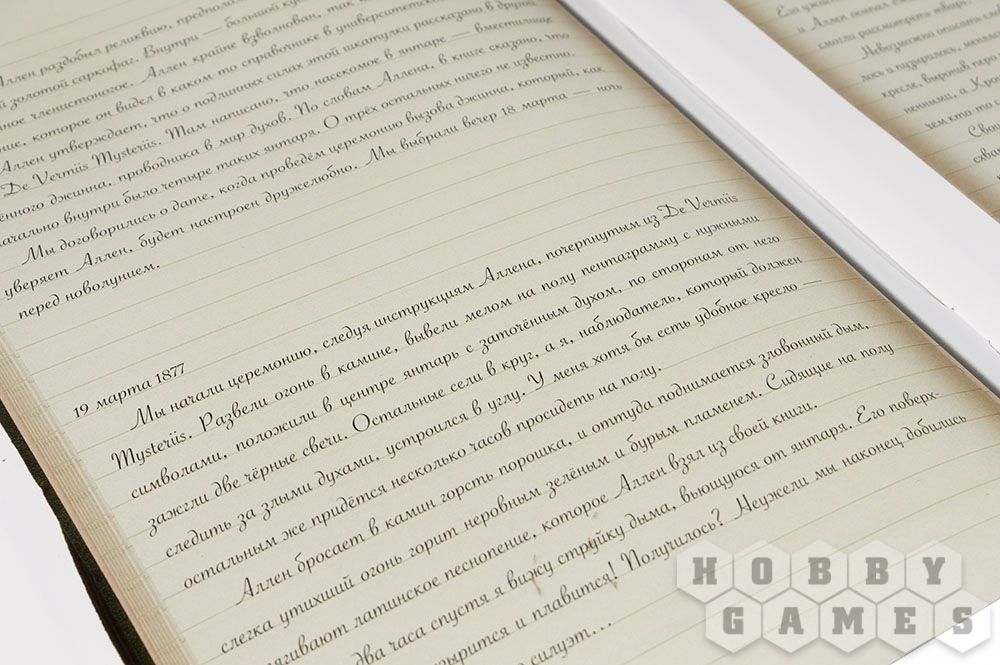 Аллен раздобыл реликвию,
й золотой саркофаг. Внутри — большой
ное членистоногое. Аллен крайне взволнован, так
ние, которое он видел в каком-то справочнике в университетской
Аллен утверждает, что о подлинных силах этой шкатулки рассказано в другой
De Vermiis Mysteriis. Там написано, что насекомое в янтаре — вместилище
ённого джинна, проводника в мир духов. По словам Аллена, в книге сказано, что
начально внутри было четыре таких янтаря. О трёх остальных ничего не известно.
Мы договорились о дате, когда проведём церемонию вызова джинна, который, как
уверяет Аллен, будет настроен дружелюбно. Мы выбрали вечер 18 марта — ночь
перед новолунием.
19 марта 1877
Мы начали церемонию, следуя инструкциям Аллена, почерпнутым из De Vermiis
Mysteriis. Развели огонь в камине, вывели мелом на полу пентаграмму с нужными
символами, положили в центре янтарь с заточённым духом, по сторонам от него
зажгли две чёрные свечи. Остальные сели в круг, а я, наблюдатель, который должен
следить за злыми духами, устроился в углу. У меня хотя бы есть удобное кресло —
остальным же придётся несколько часов просидеть на полу.
Аллен бросает в камин горсть порошка, и оттуда поднимается зловонный дым,
слегка утихший огонь горит неровным зелёным и бурым пламенем. Сидящие на полу
латинское песнопение, которое Аллен взял из своей книги.
два часа спустя я вижу струйку дыма, вьющуюся от янтаря. Его поверх-
и плавится! Получилось? Неужели мы наконец добились
силуэт...
Аллен
смогли рассмотреть твари.
Невозможно описать
лось и пузырилось,
кресле, выронив
ненными, а
чем кто-то
HOBBY
GAMES